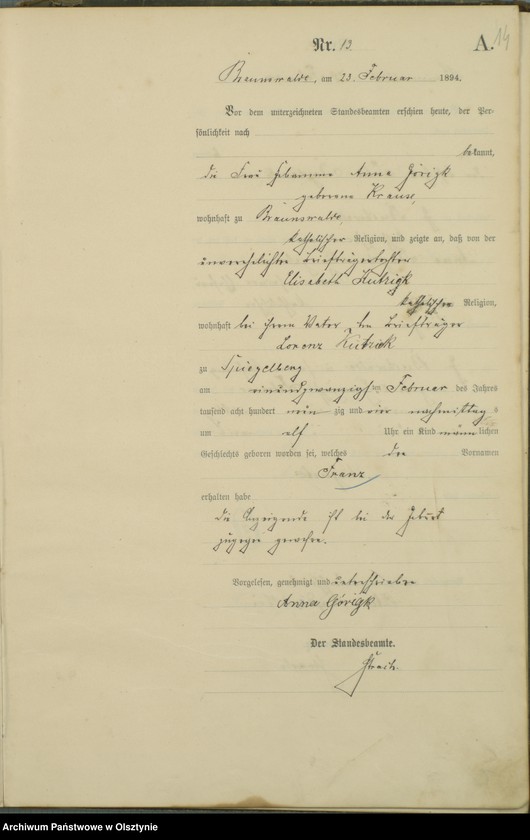 Nr. 13
A. 14
Braunswalde, am 23. Februar 1894.
Vor dem unterzeichneten Standesbeamten erschien heute, der Per-
sönlichkeit nach
bekannt,
die Hebamme Anna Görigk
geborene Krause,
wohnhaft zu Braunswalde,
katholischer Religion, und zeigte an, daß von der
unverehelichten Briefträgertochter
Elisabeth Kutrigk
katholischer Religion,
wohnhaft bei ihrem Vater, dem Briefträger
Lorenz Kutrick
zu Spiegelberg
am einundzwanzigsten Februar des Jahres
tausend acht hundert neunzig und vier nachmittags
um elf Uhr ein Kind männlichen
Geschlechts geboren worden sei, welches den Vornamen
Franz
erhalten habe
die Anzeigende ist bei der Geburt
zugegen gewesen.
Vorgelesen, genehmigt und unterschrieben
Anna Görigk
Der Standesbeamte.
Archiwum Państwowe w Olsztynie